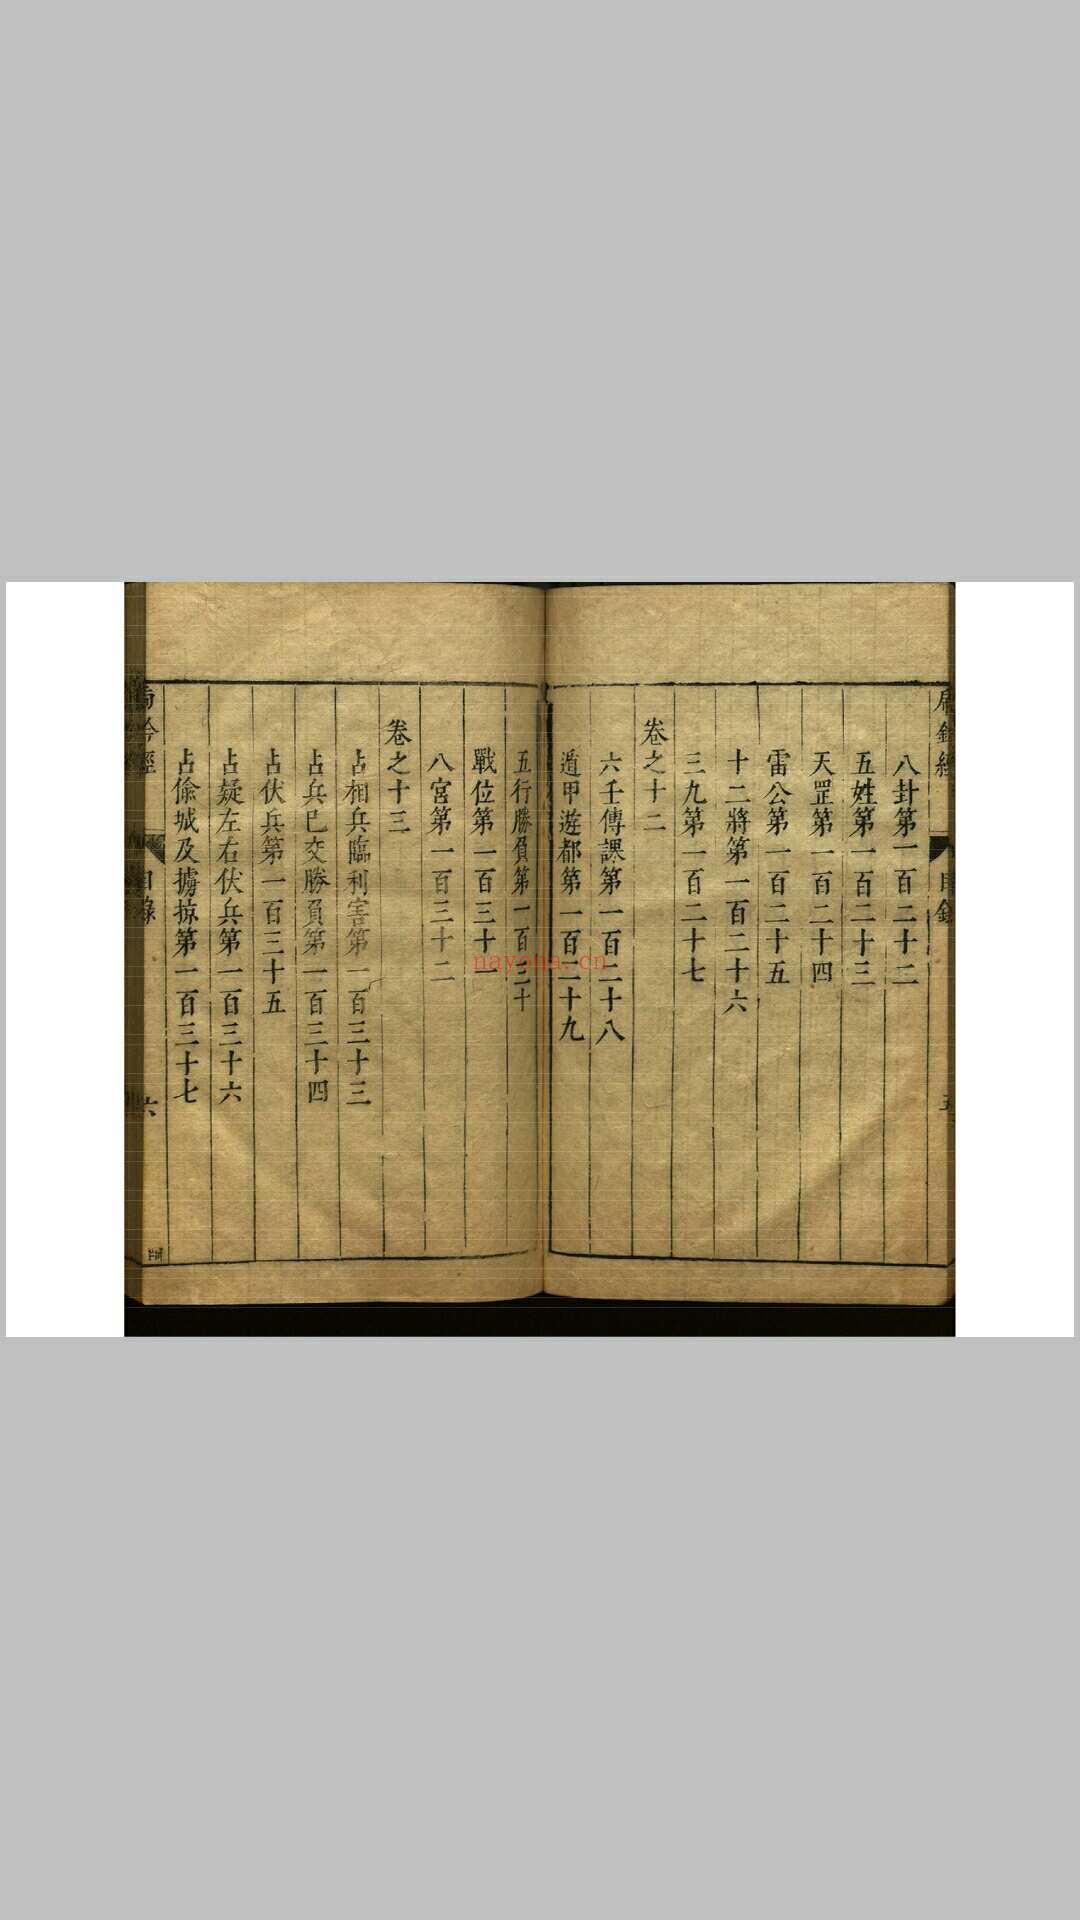 八卦第一百二十二
五姓第一百二十三
天罡第一百二十四
雷公第一百二十五
十二將第一百二十六
三九第一百二十七
卷之十二
六壬傳課第一百二十八
遁甲遊都第一百二十九
五行勝負第一百三十
戰位第一百三十一
八宮第一百三十二
卷之十三
占相兵臨利害第一百三十三
占兵已交勝負第一百三十四
占伏兵第一百三十五
占疑左右伏兵第一百三十六
占偷城及擄掠第一百三十七
目錄
六
nayona.cn